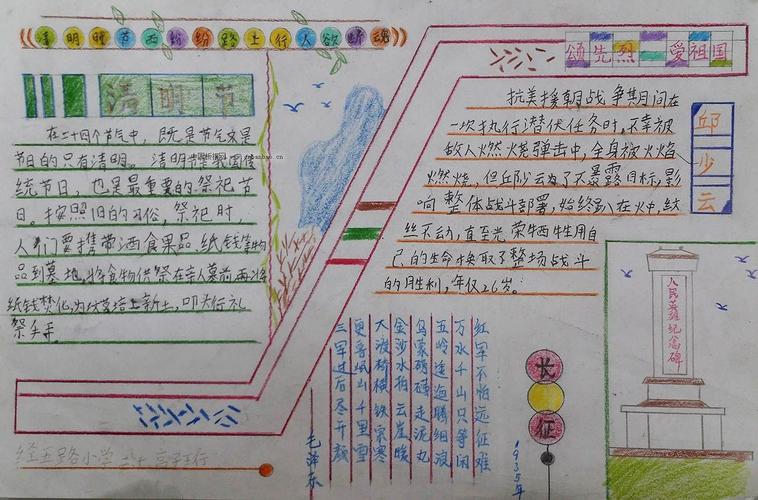 清明时节雨纷纷路上行人欲断魂
清明节
在二十四个节气中，既是节气又是
节日的只有清明。清明节是我国传
统节日，也是最重要的祭祀节
日。按照旧的习俗，祭祀时，
人们要携带酒食果品、纸钱等物
品到墓地，将食物供祭在亲人墓前，再将
纸钱焚化，为坟墓培上新土，叩头行礼
祭拜。
经五路小学
颂先烈爱祖国
抗美援朝战争期间在
一次执行潜伏任务时，不幸被
敌人燃烧弹击中，全身被火焰
燃烧，但邱少云为了不暴露目标，影
响整体战斗部署，始终趴在火中，纹
丝不动，直至光荣牺牲用自
己的生命换取了整场战斗
的胜利，年仅26岁。
邱少云
人民英雄纪念碑
长征
1935年
红军不怕远征难
万水千山只等闲
五岭逶迤腾细浪
乌蒙磅礴走泥丸
金沙水拍云崖暖
大渡桥横铁索寒
更喜岷山千里雪
三军过后尽开颜
毛泽东